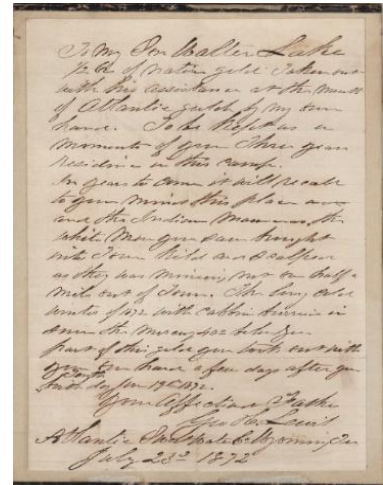 To My Son Walter Lake
1/2 oz of native gold Taken out
with his assistance at the mouth
of Atlantic gulch by my own
hands. To be Kept as a
momento of your Three years
residence in this camp.
In years to come it will recall
to your mind this place
and the Indian the
white Man you saw brought
into Town Kild and Scalped
as they was mining not one half a
mile out of Town. The long cold
winter of 1872 with cabbin in
snow the mercury 40
part of this gold you took out with
your own hands a few days after your
Tenth
birth day Jun 19th 1872.
Your Affectionate Father
Geo H
Atlantic Wyoming Ter
July 23d 1872